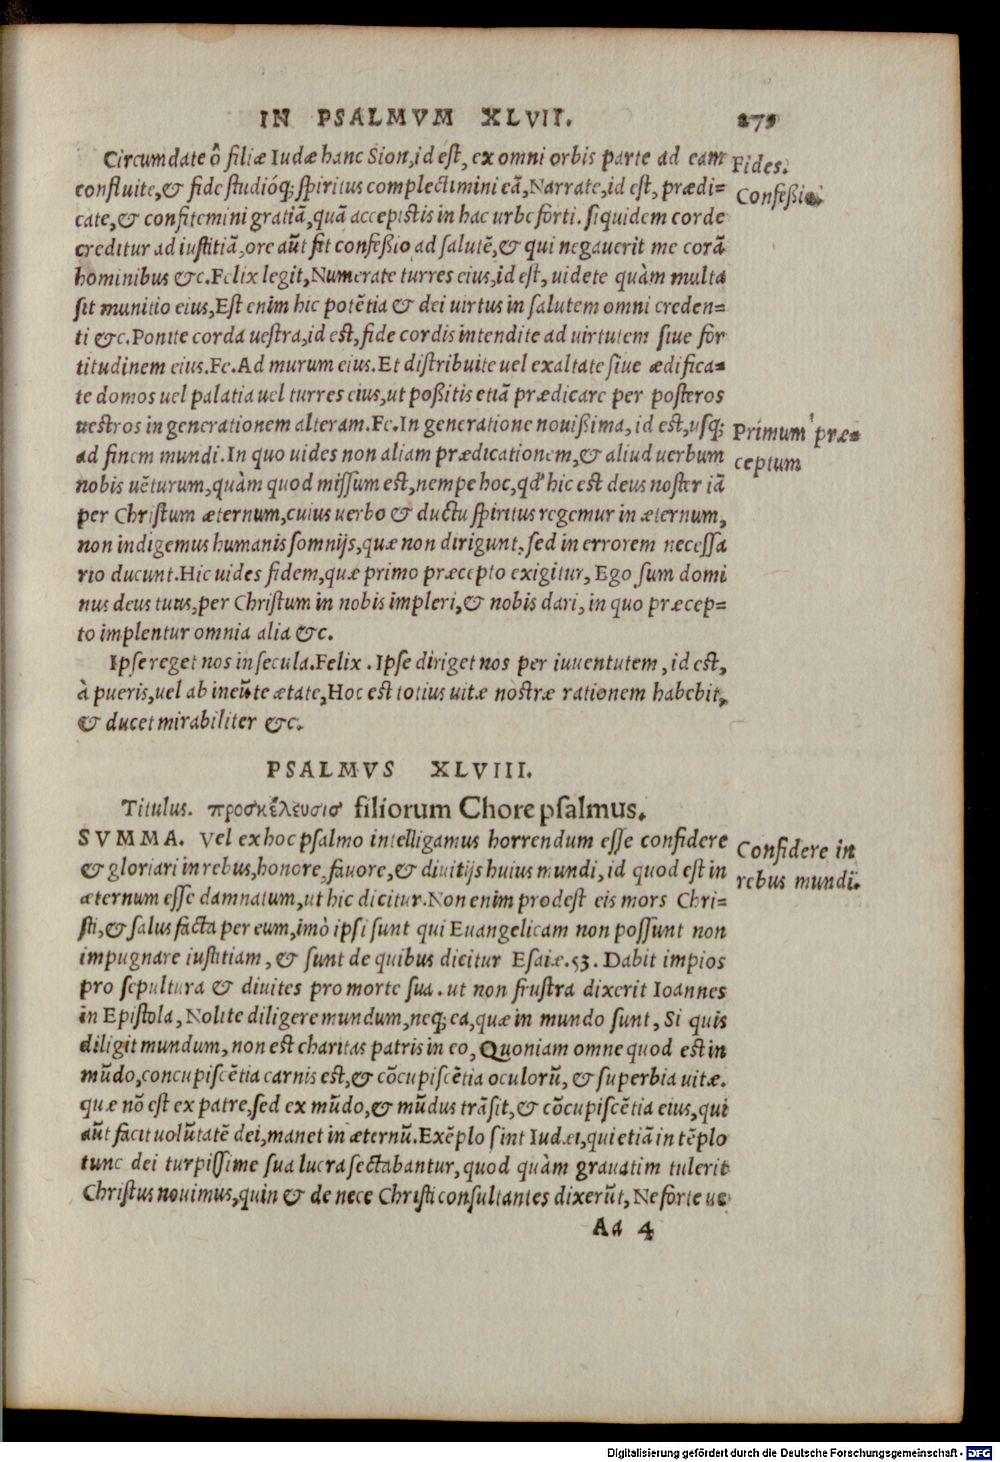 IN PSALMVM XLVII.
Circumdate ô filiæ Iudæ hanc Sion, id est, ex omni orbis parte ad eam
Fides.
confluite, & fide studióq; spiritus complectimini eã, Narrate, id est, prædi=
Confeßio
cate, & confitemini gratiã, quã accepistis in hac urbe forti. siquidem corde
creditur ad iustitiã, ore aũt fit confeßio ad salutẽ, & qui negauerit me corã
hominibus &c. Felix legit, Numerate turres eius, id est, uidete quàm multa
sit munitio eius, Est enim hic potẽtia & dei uirtus in salutem omni creden=
ti &c. Ponite corda uestra, id est, fide cordis intendite ad uirtutem siue for
titudinem eius. Fe. Ad murum eius. Et distribuite uel exaltate siue ædifica=
te domos uel palatia uel turres eius, ut poßitis etiã prædicare per posteros
uestros in generationem alteram. Fe. In generatione nouißima, id est, usq;
Primum præ=
ad finem mundi. In quo uides non aliam prædicationem, & aliud uerbum
ceptum
nobis uẽturum, quàm quod missum est, nempe hoc, qd' hic est deus noster iã
per Christum æternum, cuius uerbo & ductu spiritus regemur in æternum,
non indigemus humanis somnijs, quæ non dirigunt, sed in errorem necessa
rio ducunt. Hic uides fidem, quæ primo præcepto exigitur, Ego sum domi
nus deus tuus, per Christum in nobis impleri, & nobis dari, in quo præcep=
to implentur omnia alia &c.
Ipse reget nos in secula. Felix. Ipse diriget nos per iuuentutem, id est,
à pueris, uel ab ineũte ætate, Hoc est totius uitæ nostræ rationem habebit,
& ducet mirabiliter &c.
PSALMVS XLVIII.
Titulus. προσκέλευσισ filiorum Chore psalmus.
SVMMA. Vel ex hoc psalmo intelligamus horrendum esse confidere
Confidere in
& gloriari in rebus, honore, fauore, & diuitijs huius mundi, id quod est in
rebus mundi.
æternum esse damnatum, ut hic dicitur. Non enim prodest eis mors Chri=
sti, & salus facta per eum, imò ipsi sunt qui Euangelicam non possunt non
impugnare iustitiam, & sunt de quibus dicitur Esaiæ. 53. Dabit impios
pro sepultura & diuites pro morte sua. ut non frustra dixerit Ioannes
in Epistola, Nolite diligere mundum, neq; ea, quæ in mundo sunt, Si quis
diligit mundum, non est charitas patris in eo, Quoniam omne quod est in
mũdo, concupiscẽtia carnis est, & cõcupiscẽtia oculorũ, & superbia uitæ.
quæ nõ est ex patre, sed ex mũdo, & mũdus trãsit, & cõcupiscẽtia eius, qui
aũt facit uolũtatẽ dei, manet in æternũ. Exẽplo sint Iudæi, qui etiã in tẽplo
tunc dei turpissime sua lucra sectabantur, quod quàm grauatim tulerit
Christus nouimus, quin & de nece Christi consultantes dixerũt, Ne forte ue
Aa 4
Digitalisierung gefördert durch die Deutsche Forschungsgemeinschaft - DFG